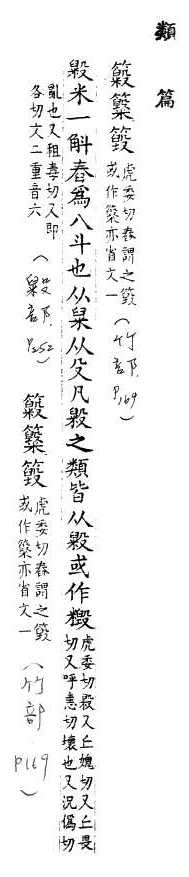 類篇
虎委切舂謂之
或作亦省文一
(竹部 P.169)
毇米一斛舂為八斗也从从殳凡毇之類皆从毇或作
虎委切毇又丘媿切又丘畏
切又呼恚切壞也又況偽切
亂也又租毒切又即
各切文二重音六
(毇部 P252)
虎委切舂謂之
或作亦省文一
(竹部 P169)